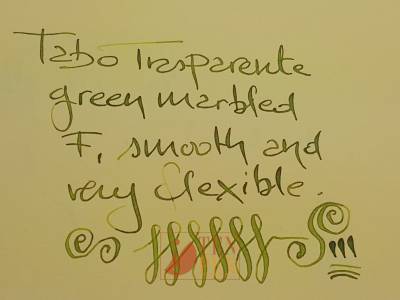 Tabo Trasparente
green marbled
F, smooth and
very flexible.